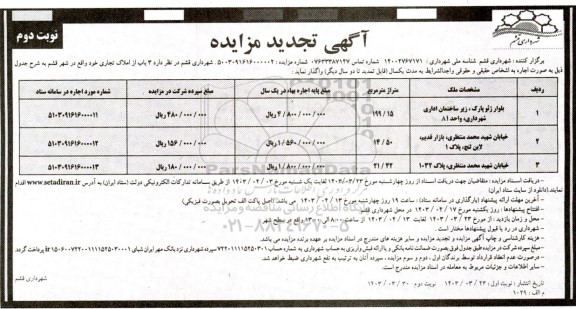 نوبت دوم
آگهی تجدید مزایده
شهرداری قشم
برگزار کننده : شهرداری قشم شناسه ملی شهرداری : ۱۴۰۰۲۷۶۷۱۷۱ شماره تماس: ۰۷۶۳۳۳۸۷۱۲۷ شماره مزایده : ۵۰۰۳۰۹۱۶۱۶۰۰۰۰۰۲ شهرداری قشم در نظر دارد ۳ باب از املاک تجاری خود واقع در شهر قشم به شرح جدول
ذیل به صورت اجاره به اشخاص حقیقی و حقوقی واجدالشرایط به مدت یکسال (قابل تمدید تا دو سال دیگر) واگذار نماید :
ردیف مشخصات ملک متراژ مترمربع مبلغ پایه اجاره بهاء در یک سال مبلغ سپرده شرکت در مزایده شماره مورد اجاره در سامانه ستاد
۱ بلوار ژئو پارک ، زیر ساختمان اداری شهرداری، واحد A۱ ۱۹۹/۱۵ ۴/۸۰۰/۰۰۰/۰۰۰ ریال ۴۸۰/۰۰۰/۰۰۰ ریال ۵۱۰۳۰۹۱۶۱۶۰۰۰۰۱۱
۲ خیابان شهید محمد منتظری، بازار قدیم، لاین لنج، پلاک ۱ ۱۴/۵۰ ۱/۵۶۰/۰۰۰/۰۰۰ ریال ۱۵۶/۰۰۰/۰۰۰ ریال ۵۱۰۳۰۹۱۶۱۶۰۰۰۰۱۲
۳ خیابان شهید محمد منتظری، پلاک ۱۰۳۲ ۲۱/۴۲ ۱/۸۰۰/۰۰۰/۰۰۰ ریال ۱۸۰/۰۰۰/۰۰۰ ریال ۵۱۰۳۰۹۱۶۱۶۰۰۰۰۱۳
- دریافت اسناد مزایده : متقاضیان جهت دریافت اسناد از روز چهارشنبه مورخ ۱۴۰۳/۰۳/۲۳ لغایت یک شنبه مورخ ۱۴۰۳/۰۴/۰۳ از طریق سامانه تدارکات الکترونیکی دولت (ستاد ایران) به آدرس www.setadiran.ir اقدام
نمایند.(دانلود از سایت ستاد ایران)
- آخرین مهلت ارائه پیشنهاد (بارگذاری در سامانه ستاد) : ساعت ۱۹ روز چهارشنبه مورخ ۱۴۰۳/۰۴/۱۳ می باشد. (اصل پاکت الف تحویل بصورت فیزیکی)
- افتتاح پیشنهادها : روز یکشنبه مورخ ۱۴۰۳/۰۴/۱۷ در محل شهرداری قشم
- محل و زمان بازدید : از مورخ ۱۴۰۳/۰۳/۲۳ لغایت ۱۴۰۳/۰۴/۱۳ از ساعت ۸:۰۰ الی ۱۳:۰۰ واقع در سطح شهر
- شهرداری در رد یا قبول پیشنهادها مختار است.
- هزینه کارشناسی و چاپ آگهی مزایده و تجدید مزایده و سایر هزینه های مندرج در اسناد مزایده بر عهده برنده مزایده می باشد.
- مبلغ سپرده شرکت در مزایده طبق جدول فوق بصورت ضمانت نامه بانکی و یا ارائه فیش واریزی به حساب شهرداری به شماره حساب
- درصورت عدم انعقاد قرارداد توسط برندگان اول ، دوم و سوم مزایده ، سپرده آنان به ترتیب به نفع شهرداری ضبط خواهد شد.
- سایر اطلاعات و جزئیات مربوط به معامله در اسناد مزایده مندرج است.
شهرداری قشم
تاریخ انتشار : نوبت اول : ۱۴۰۳/۰۳/۲۳ نوبت دوم ۱۴۰۳/۰۳/۳۰
م الف : ۱۰۲۹
ParsNamadData
۰۲۱-۸۸۳۴۹۶۷۰-۵